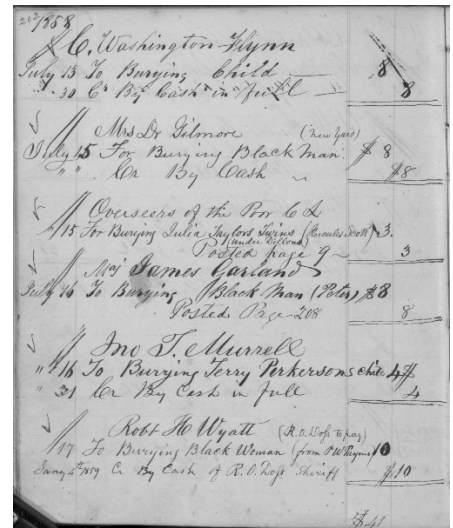 202 1858
C. Washington Flynn
July 13 To Burying Child 8
" 30 Cr By Cash in full 8
Mrs Dr Gilmore (New Yard)
July 15 For Burying Black Man $ 8
" " Cr By Cash $8
Overseers of the Poor C L
" 15 For Burying Julia Taylors Twins (Hercules Scott) 3.
(under Dillond)
Posted page 9 3
Maj James Garland
July 16 To Burying Black Man (Peter) $8
Posted Page 208 8
Jno T. Murrell
" 16 To Burying Terry Perkersons Child 4
" 31 Cr By Cash in full 4
Robt H Wyatt (R.O. Doss to pay)
" 17 To Burying Black Woman (from 10
Jany 4th 1859 Cr By Cash of R.O. Doss Sheriff $10
$41